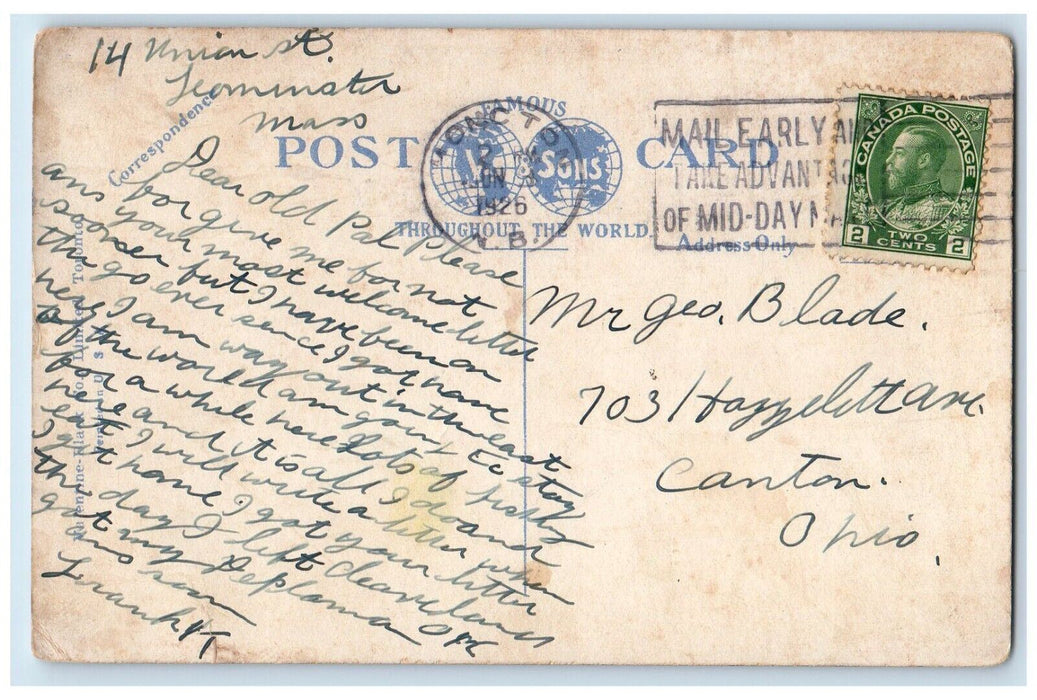 14 Union st.
Leominster
Mass
Correspondence
FAMOUS
POST CARD
Sons
THROUGHOUT THE WORLD
Address Only
MONCTON
2
JUN
1926
N.B.
MAIL EARLY AND
TAKE ADVANTAGE
OF MID-DAY MAILS
CANADA POSTAGE
2 TWO CENTS 2
Dear old Pal Please
forgive me for not
ans your most welcome letter
sooner but I have been on
the go ever sence I got here
here I am way out in the east
of the world am going to stay
for a while here Lots of fish
here and it is all I do and
eat I will write a letter when
I get home I got your letter
the day I left Cleveland
got my Deplama OK
ans soon
Frank
Mr Geo. Blade.
703 Hazzelett Ave.
Canton.
Ohio.
Limited
Toronto